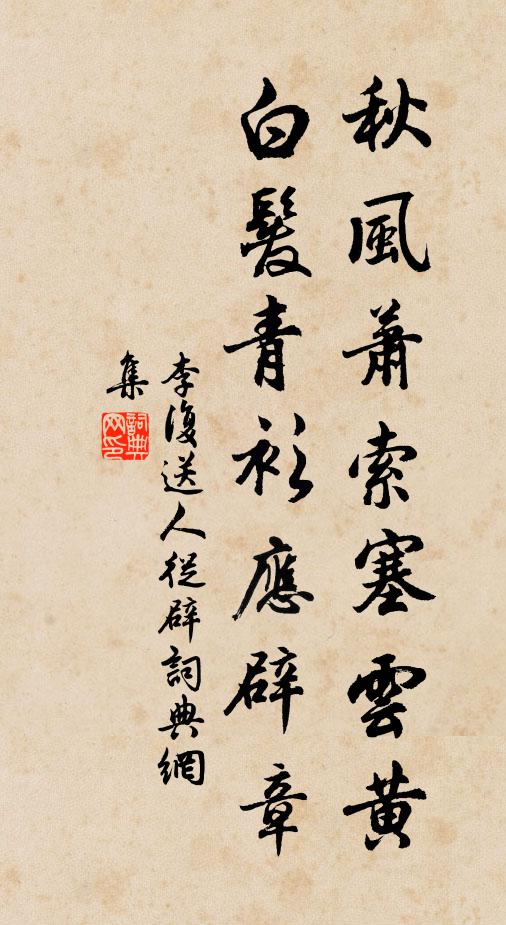 秋風蕭索塞雲黃
白髮青衫應辟章
李復送人從辟詞典網
集
詞典
网印